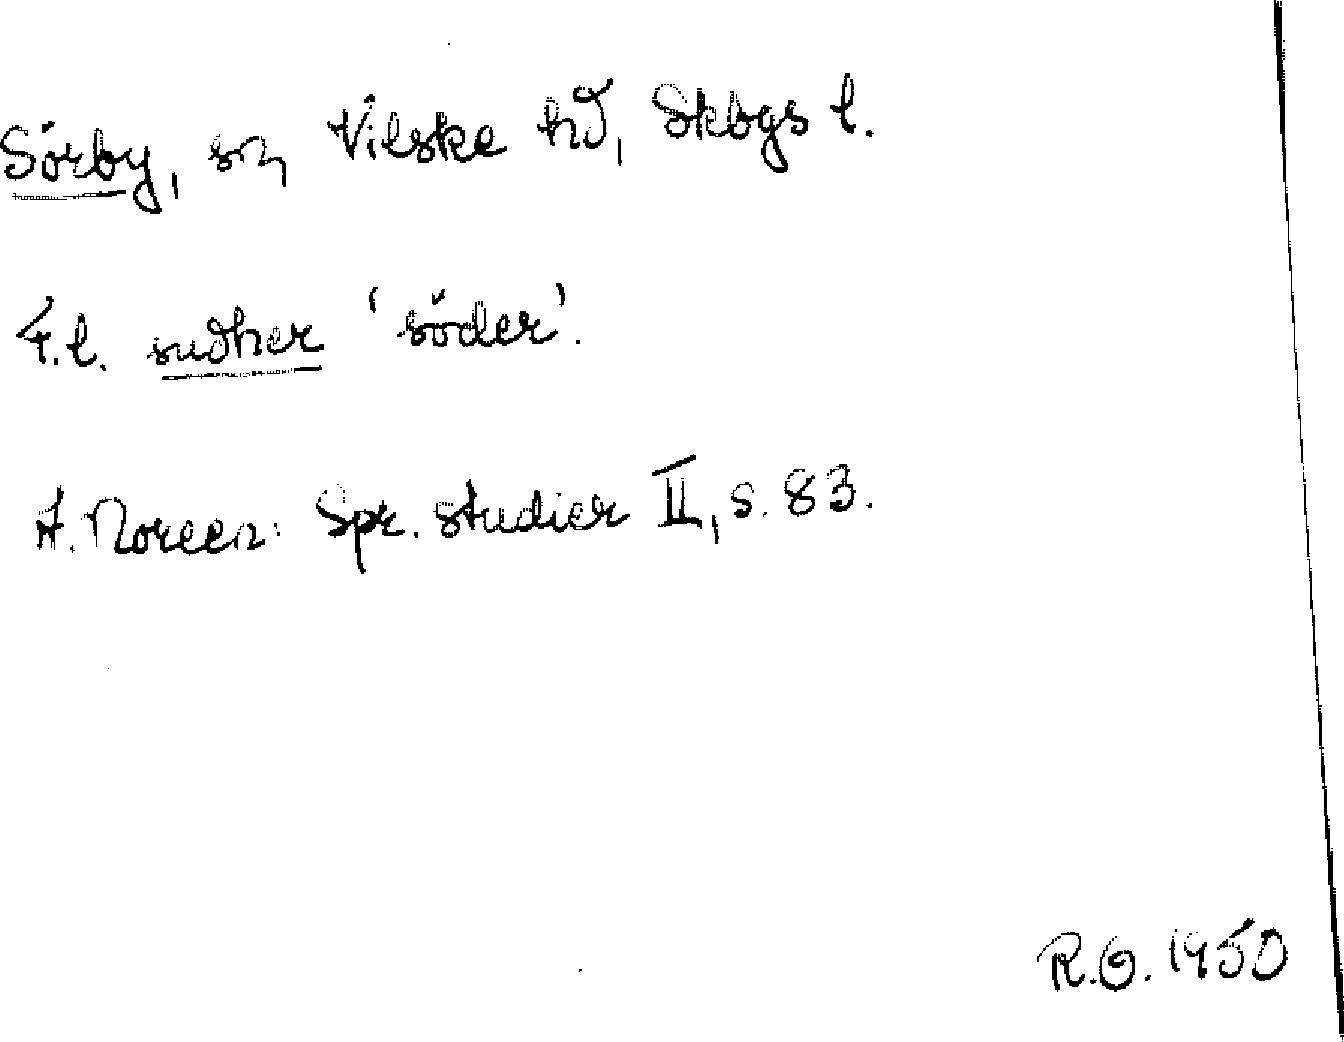 Sörby, sn, Vilske hd, Skbgs l.
F.l. sudher 'söder'.
A. Noreen: Spr. studier II, s. 83.
R.O. 1950